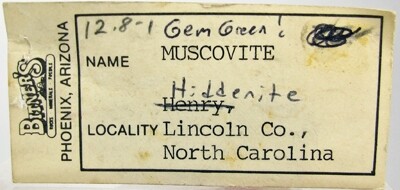 12.8-1 Gem Green!
NAME MUSCOVITE
Hiddenite
Henry,
LOCALITY Lincoln Co.,
North Carolina
BITNER'S
PHOENIX, ARIZONA